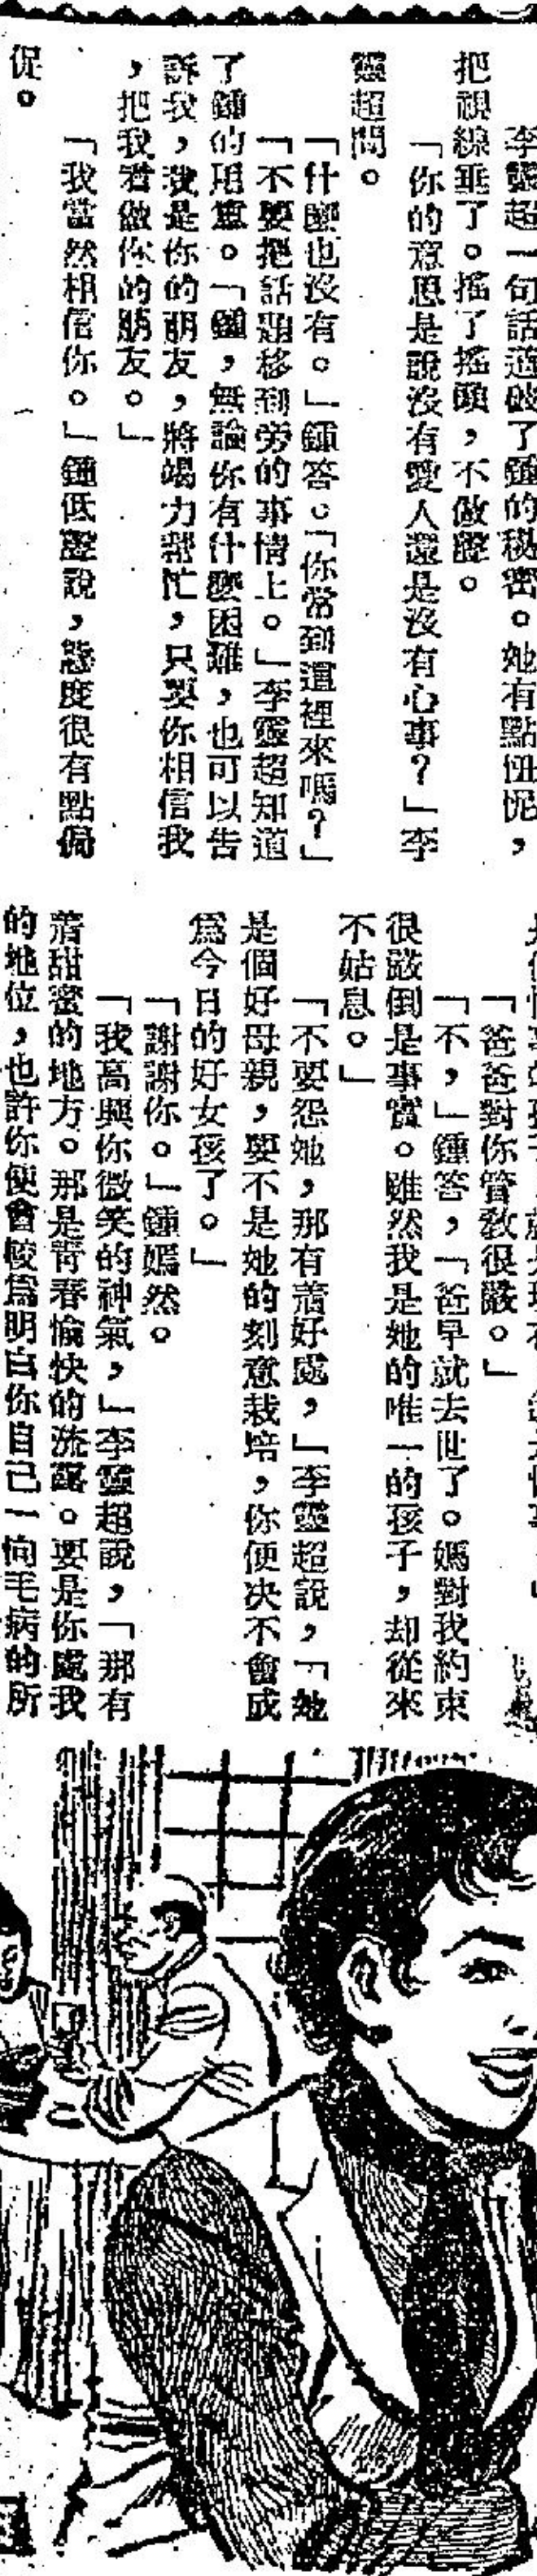 李靈超一句話道破了鍾的秘密。她有點忸怩，
把視線垂了。搖了搖頭，不做聲。
「你的意思是說沒有愛人還是沒有心事？」李
靈超問。
「什麼也沒有。」鍾答。「你常到這裡來嗎？」
「不要把話題移到旁的事情上。」李靈超知道
了鍾的用意。「鍾，無論你有什麼困難，也可以告
訴我，我是你的朋友，將竭力幫忙，只要你相信我
，把我看做你的朋友。」
「我當然相信你。」鍾低聲說，態度很有點侷
促。
「爸爸對你管教很嚴。」
「不，」鍾答，「爸早就去世了。媽對我約束
很嚴倒是事實。雖然我是她的唯一的孩子，却從來
不姑息。」
「不要怨她，那有着好處，」李靈超說，「她
是個好母親，要不是她的刻意栽培，你便決不會成
爲今日的好女孩了。」
「謝謝你。」鍾嫣然。
「我高興你微笑的神氣，」李靈超說，「那有
着甜蜜的地方。那是青春愉快的流露。要是你處我
的地位，也許你便會較爲明白你自己一向毛病的所